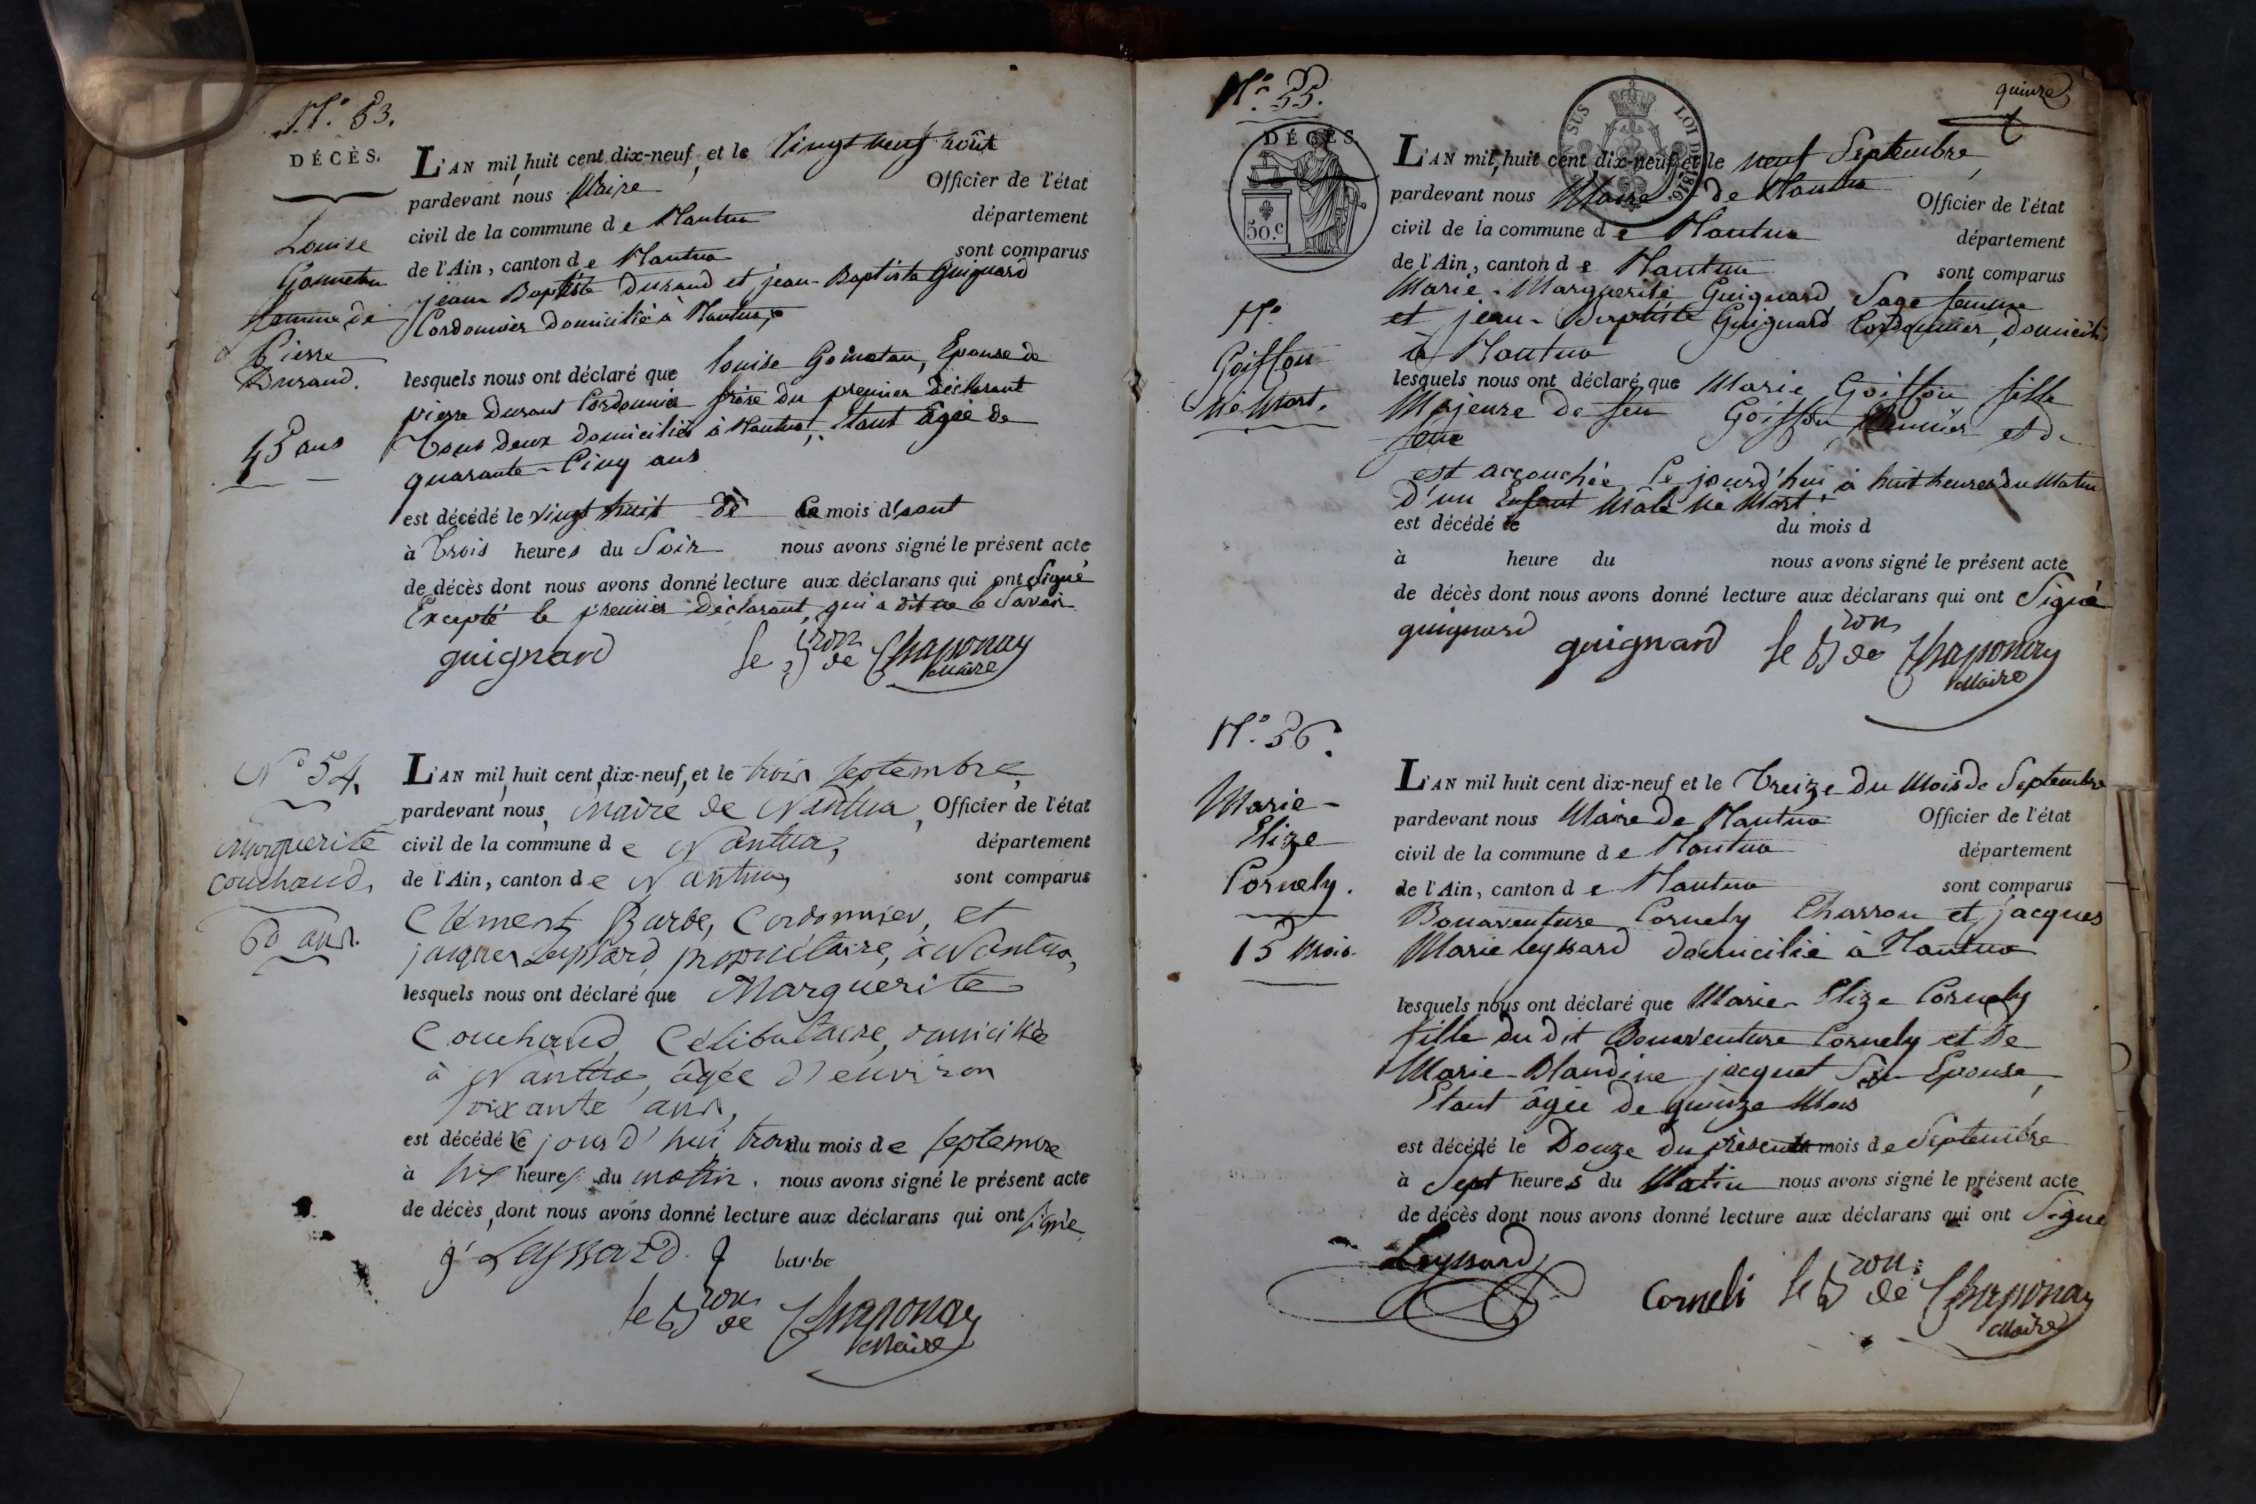 N.º 53.
DÉCÈS.
Louise
femme de
Pierre
Durand.
45 ans
L'AN mil huit cent dix-neuf, et le vingt neuf août
pardevant nous Maire Officier de l'état
civil de la commune de Nantua département
de l'Ain, canton de Nantua sont comparus
jean Baptiste Durand et jean-Baptiste Guignard
Cordonnier domicilié à Nantua,
lesquels nous ont déclaré que louise Epouse de
pierre durant Cordonnier frère du premier déclarant
Tous deux domiciliés à Nantua, Etant âgée de
quarante-Cinq ans
est décédé le vingt huit de Ce mois d'aout
à Trois heures du Soir nous avons signé le présent acte
de décès dont nous avons donné lecture aux déclarans qui ont Signé
Excepté le premier déclarant, qui a dit ne le Savoir
guignard le Bron de Chaponay
Maire
N.º 54.
Marguerite
Couchaud,
60 ans.
L'AN mil huit cent dix-neuf, et le trois Septembre,
pardevant nous, Maire de Nantua, Officier de l'état
civil de la commune de Nantua, département
de l'Ain, canton de Nantua, sont comparus
Clément Barbe, Cordonnier, et
jacques Leyssard, propriétaire, à Nantua,
lesquels nous ont déclaré que Marguerite
Couchaud, Célibataire, domiciliée
à Nantua, âgée d'environ
soixante ans,
est décédé le jourd'hui trois du mois de septembre
à six heures du matin, nous avons signé le présent acte
de décès, dont nous avons donné lecture aux déclarans qui ont signé
Leyssard. barbe
le Bron de Chaponay
Maire
quinze
N.º 55.
DÉCÈS
50.c
SUS LOI DE 1816
N.
Goiffon
Né Mort.
L'AN mil huit cent dix-neuf et le neuf Septembre
pardevant nous Maire de Nantua Officier de l'état
civil de la commune de Nantua département
de l'Ain, canton de Nantua sont comparus
Marie-Marguerite Guignard Sage femme
et jean-Baptiste Guignard Cordonnier, domicilié
à Nantua
lesquels nous ont déclaré que Marie Goiffon fille
Majeure de feu Goiffon et de
feue
est accouchée Ce jourd'hui à huit heures du Matin
D'un Enfant Mâle Né Mort.
est décédé le du mois d
à heure du nous avons signé le présent acte
de décès dont nous avons donné lecture aux déclarans qui ont Signé
guignard guignard le Bron de Chaponay
Maire
N.º 56.
Marie-
Elize
Cornely.
15 Mois.
L'AN mil huit cent dix-neuf et le Treize du Mois de Septembre
pardevant nous Maire de Nantua Officier de l'état
civil de la commune de Nantua département
de l'Ain, canton de Nantua sont comparus
Bonaventure Cornely Charron et jacques
Marie leyssard domicilié à Nantua
lesquels nous ont déclaré que Marie-Elize Cornely
fille du dit Bonaventure Cornely et de
Marie-Blandine jacquet Son Epouse,
Etant âgée de quinze Mois
est décédé le Douze du présent mois de Septembre
à Sept heures du Matin nous avons signé le présent acte
de décès dont nous avons donné lecture aux déclarans qui ont Signé
Leyssard Corneli le Bron de Chaponay
Maire